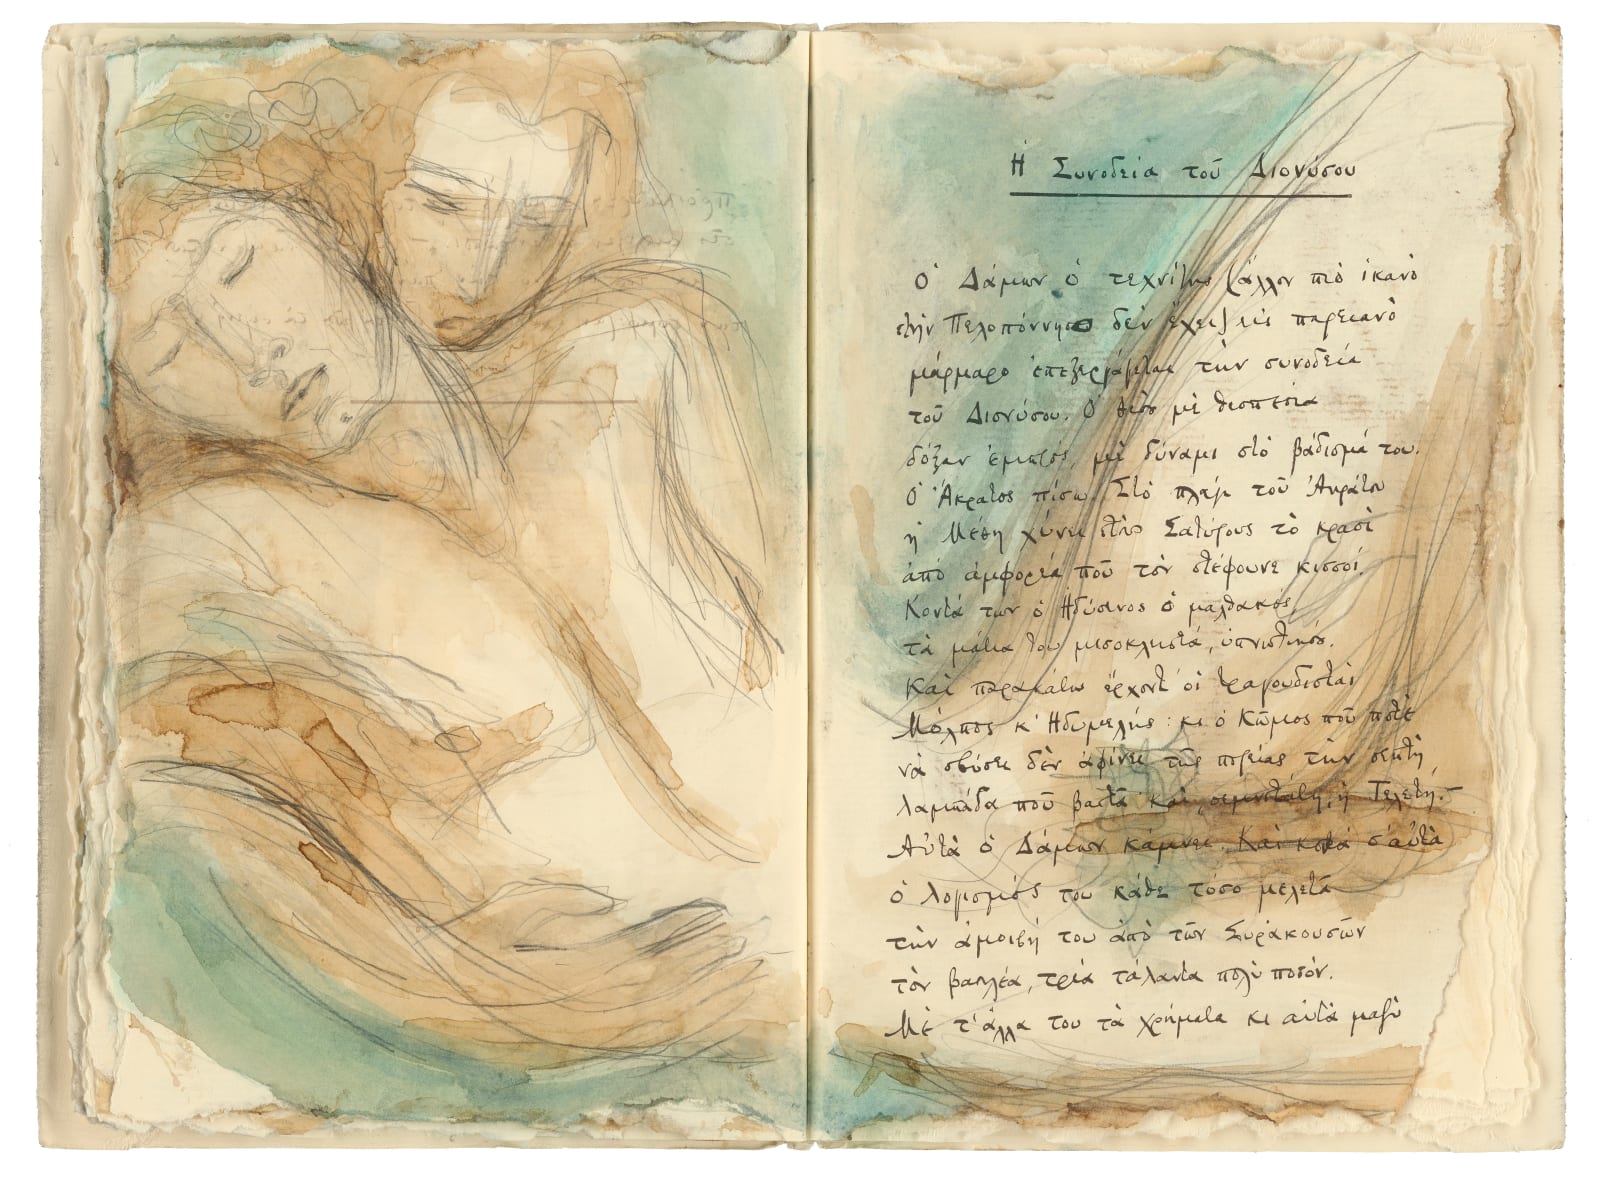 Ἡ Συνοδεία τοῦ Διονύσου
Ὁ Δάμων ὁ τεχνίτης (ἄλλον πιὸ ἱκανὸ
στὴν Πελοπόννησο δὲν ἔχει) εἰς παριανὸ
μάρμαρο ἐπεξεργάζεται τὴν συνοδεία
τοῦ Διονύσου. Ὁ θεὸς μὲ θεσπεσία
δόξαν ἐμπρός, μὲ δύναμι στὸ βάδισμά του.
Ὁ Ἄκρατος πίσω. Στὸ πλάγι τοῦ Ἀκράτου
ἡ Μέθη χύνει στοὺς Σατύρους τὸ κρασὶ
ἀπὸ ἀμφορέα ποῦ τὸν στέφουνε κισσοί.
Κοντά των ὁ Ἡδύοινος ὁ μαλθακός,
τὰ μάτια του μισοκλειστά, ὑπνωτικός.
Καὶ παρακάτω ἔρχοντ' οἱ τραγουδισταὶ
Μόλπος κ' Ἡδυμελής· κι ὁ Κῶμος ποῦ ποτὲ
νὰ σβύσει δὲν ἀφίνει τῆς πορείας τὴν σεπτὴ
λαμπάδα ποῦ βαστᾶ· καὶ, σεμνοτάτη, ἡ Τελετή.–
Αὐτὰ ὁ Δάμων κάμνει. Καὶ κοντὰ σ' αὐτὰ
ὁ λογισμός του κάθε τόσο μελετᾶ
τὴν ἀμοιβή του ἀπὸ τῶν Συρακουσῶν
τὸν βασιλέα, τρία τάλαντα, πολὺ ποσόν.
Μὲ τ' ἄλλα του τὰ χρήματα κι αὐτὰ μαζὺ